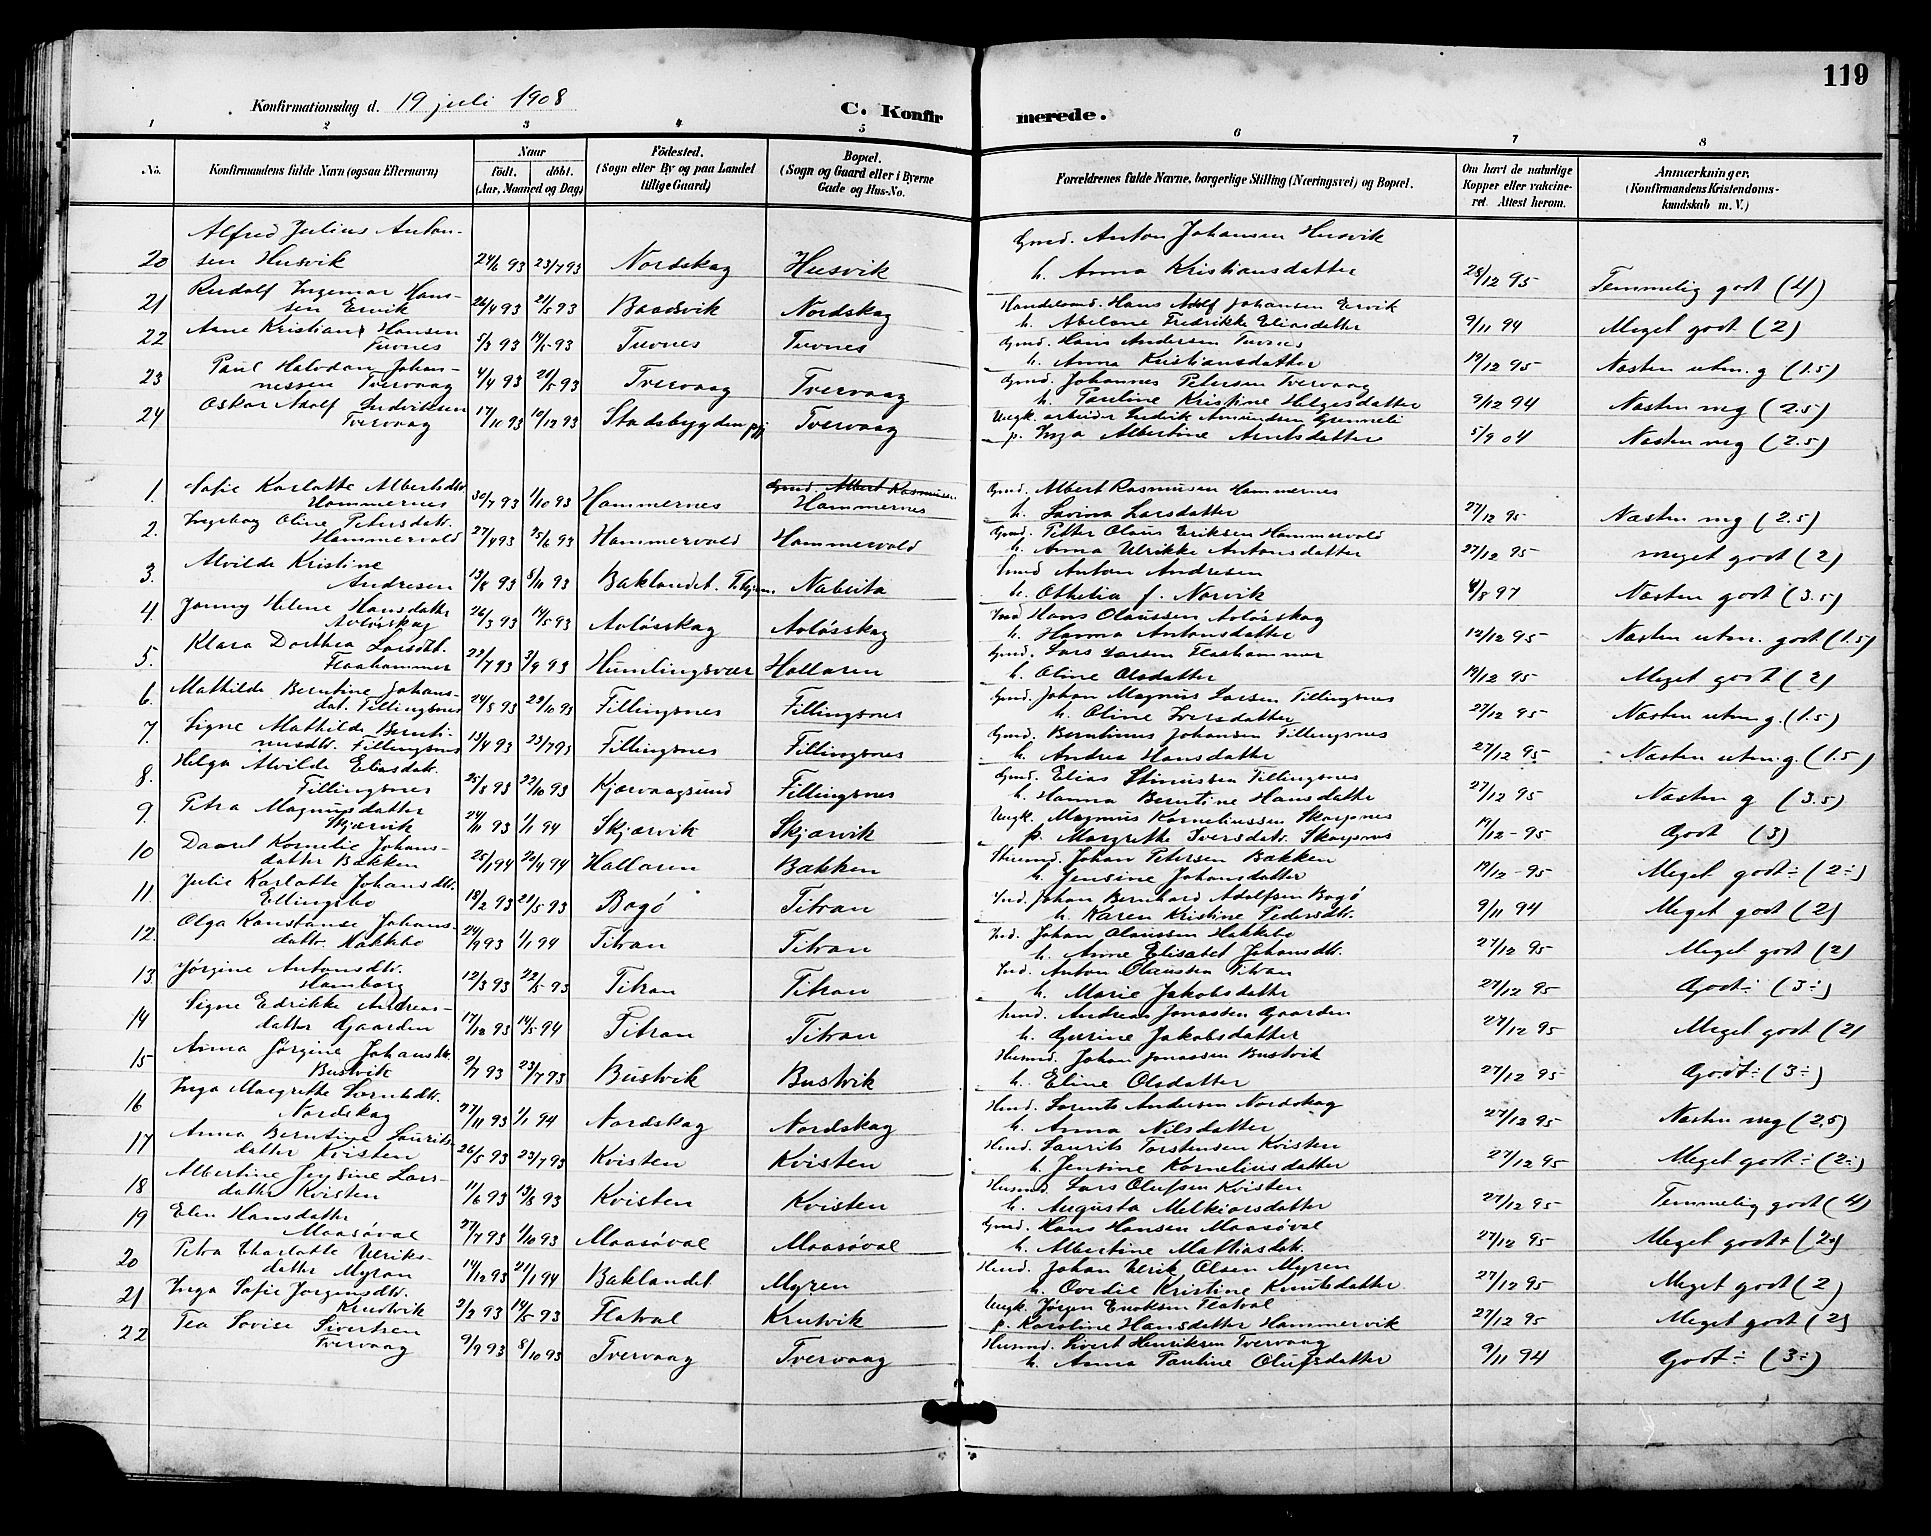 119
Konfirmationsdag d. 19 juli 1908
C. Konfirmerede.
1 2 3 4 5 6 7 8
No. Konfirmandens fulde Navn (ogsaa Efternavn) Naar født. døbt. (Aar, Maaned og Dag) Fødested. (Sogn eller By og paa Landet tillige Gaard) Bopæl. (Sogn og Gaard eller i Byerne Gade og Hus-No. Forældrenes fulde Navne, borgerlige Stilling (Næringsvei) og Bopæl. Om havt de naturlige Kopper eller vakcineret. Attest herom. Anmærkninger. (Konfirmandens Kristendomskundskab m. V.)
Alfred Julius Anton- Gmd. Anton Johansen Husvik
20 sen Husvik 24/6 93 23/7 93 Nordskag Husvik h. Anna Kristiansdatter 28/12 95 Temmelig godt (4)
Rudolf Ingemar Hans- Handelsmd. Hans Adolf Johansen Ervik
21 sen Ervik 26/4 93 21/5 93 Baadsvik Nordskag h. Abelone Fredrikke Eliasdatter 9/11 94 Meget godt (2)
Arne Kristian Hansen Gmd. Hans Andersen Tuvnes
22 Tuvnes 5/3 93 14/5 93 Tuvnes Tuvnes h. Anna Kristiansdatter 19/12 95 Næsten utm. g (1.5)
Paul Halvdan Johan- Gmd. Johannes Petersen Tvervaag
23 nessen Tvervaag 4/4 93 21/5 93 Tvervaag Tvervaag h. Pauline Kristine Helgesdatter 9/12 94 Næsten mg (2.5)
Oskar Adolf Ludviksen Ungk. arbeider Ludvik Amundsen
24 Tvervaag 17/10 93 10/12 93 Stadsbygden pgj Tvervaag p. Inga Albertine Arntsdatter 5/9 04 Næsten mg (2.5)
Sofie Karlotte Albertsdtr. Gmd. Albert Rasmussen Gmd. Albert Rasmusen Hammernes
1. Hammernes 30/7 93 1/10 93 Hammernes Hammernes h. Lavina Larsdatter 27/12 95 Næsten mg (2.5)
Ingeborg Oline Petersdatr. Gmd. Petter Olaus Eriksen Hammervold
2. Hammervold 27/4 93 25/6 93 Hammervold Hammervold h. Anna Ulrikke Antonsdatter 27/12 95 meget godt (2)
Alvilde Kristine Smed Anton Andresen
3. Andresen 13/8 93 5/11 93 Baklandet. Nabeita h. Othelia f. Norvik 4/8 97 Næsten godt (3.5)
Jonny Helene Hansdatter Ind Hans Olaussen Avløsskag
4. Avløsskag 26/3 93 14/5 93 Avløsskag Avløsskag h. Hanna Antonsdatter 12/12 95 Næsten utm. godt (1.5)
Klara Dorthea Larsdtr. Gmd. Lars Larsen Flashammer
5. Flaahammer 22/7 93 3/9 93 Humlingsvær Hallaren h. Oline Olsdatter 19/12 95 Meget godt (2)
Mathilde Berntine Johans- Gmd. Johan Magnus Larsen Fillingsnes
6. dat. Fillingsnes 24/8 93 29/10 93 Fillingsnes Fillingsnes h. Oline Iversdatter 27/12 95 Næsten utm g. (1.5)
Signe Mathilde Bernti- Gmd. Berntinus Johansen Fillingsnes
7. nusdtr. Fillingsnes 13/4 93 23/7 93 Fillingsnes Fillingsnes h. Andrea Hansdatter 27/12 95 Næsten utm. g. (1.5)
Helga Alvilde Eliasdatr. Gmd. Elias Stinussen Fillingsnes
8. Fillingsnes 25/8 93 22/10 93 Kjærvaagsund Fillingsnes h. Hanna Berntine Hansdatter 27/12 95 Næsten g (3.5)
Petra Magnusdatter Ungk. Magnus Korneliussen Skarpnes
9 Skjærvik 24/11 93 1/1 94 Skjærvik Skjærvik p. Margrethe Iversdatr. Skarpnes 19/12-95 Godt (3)
Daarel Kornelie Johans- Johan Petersen Bakken
10 datter Bakken 25/1 94 22/4 94 Hallaren Bakken h. Jensine Johansdatter 19/12-95 Meget godt ÷ (2÷)
Julie Karlotte Johansdtr. Ind. Johan Bernhard Adolfsen Bogø
11 Ellingsbo 18/2 93 21/5 93 Bogø Titran h. Karen Kristine Pedersdtr. 9/11 94 Meget godt (2)
Olga Konstanse Johans- Ind. Johan Olaussen Hakkebo
12. dattr. Hakkebo 24/9 93 1/1 94 Titran Titran h. Anne Elisabet Johansdtr. 27/12 95 Meget godt (2)
Jørgine Antonsdtr. Ind. Anton Olaussen Titran
13 Hamborg 12/3 93 22/5-93 Titran Titran h. Marie Jakobsdatter 27/12 95 Godt ÷ (3÷)
Signe Edrikke Andreas- Andreas Jonassen Gaarden
14 datter Gaarden 17/12 93 14/5 94 Titran Titran h. Gurine Jakobsdatter 27/12 95 Meget godt (2)
Anna Jørgine Johansdtr. Husmd. Johan Jonassen Bustvik
15 Bustvik 2/7 93 23/7 93 Bustvik Bustvik h. Eline Olsdatter 27/12 95 Godt ÷ (3÷)
Inga Margrethe Lorentsdtr. Hmd. Lorents Andersen Nordskag
16 Nordskag 27/11 93 1/1 94 Nordskag Nordskag h. Anna Nilsdatter 27/12 95 Næsten mg (2,5)
Anna Berntine Laurits- Hmd. Laurits Torstensen Kvisten
17 datter Kvisten 26/5 93 23/7 93 Kvisten Kvisten h. Jensine Korneliusdatter 27/12 95 Meget godt ÷ (2÷)
Albertine Jensine Lars- Husmd. Lars Olufsen Kvisten
18 datter Kvisten 11/6 93 13/8 93 Kvisten Kvisten h. Augusta Melkiorsdatter 27/12 95 Temmelig godt (4)
Elen Hansdatter Gmd. Hans Hansen Maasøval
19 Maasøval 27/7 93 1/10 93 Maasøval Maasøval h. Albertine Mattiasdatr. 27/12 95 Meget godt (2)
Petra Charlotte Ulriks- Hmd. Johan Ulrik Olsen Myren
20 datter Myran 14/12 93 21/1 94 Baklandet Myren h. Ovedie Kristine Knutsdatter 27/12 95 Meget godt (2)
Inga Sofie Jørgensdtr. Ungk. Jørgen Enoksen Flatval
21 Krutvik 2/2 93 14/5 93 Flatval Krutvik p. Karoline Hansdatter Hammervik 27/12 95 Meget godt (2)
Tea Lovise Sivertsen Husmd. Sivert Henriksen Tvervaag
22 Tvervaag 9/9 93 8/10 93 Tvervaag Tvervaag h. Anna Pauline Olufsdatter 9/11 94 Godt ÷ (3÷)